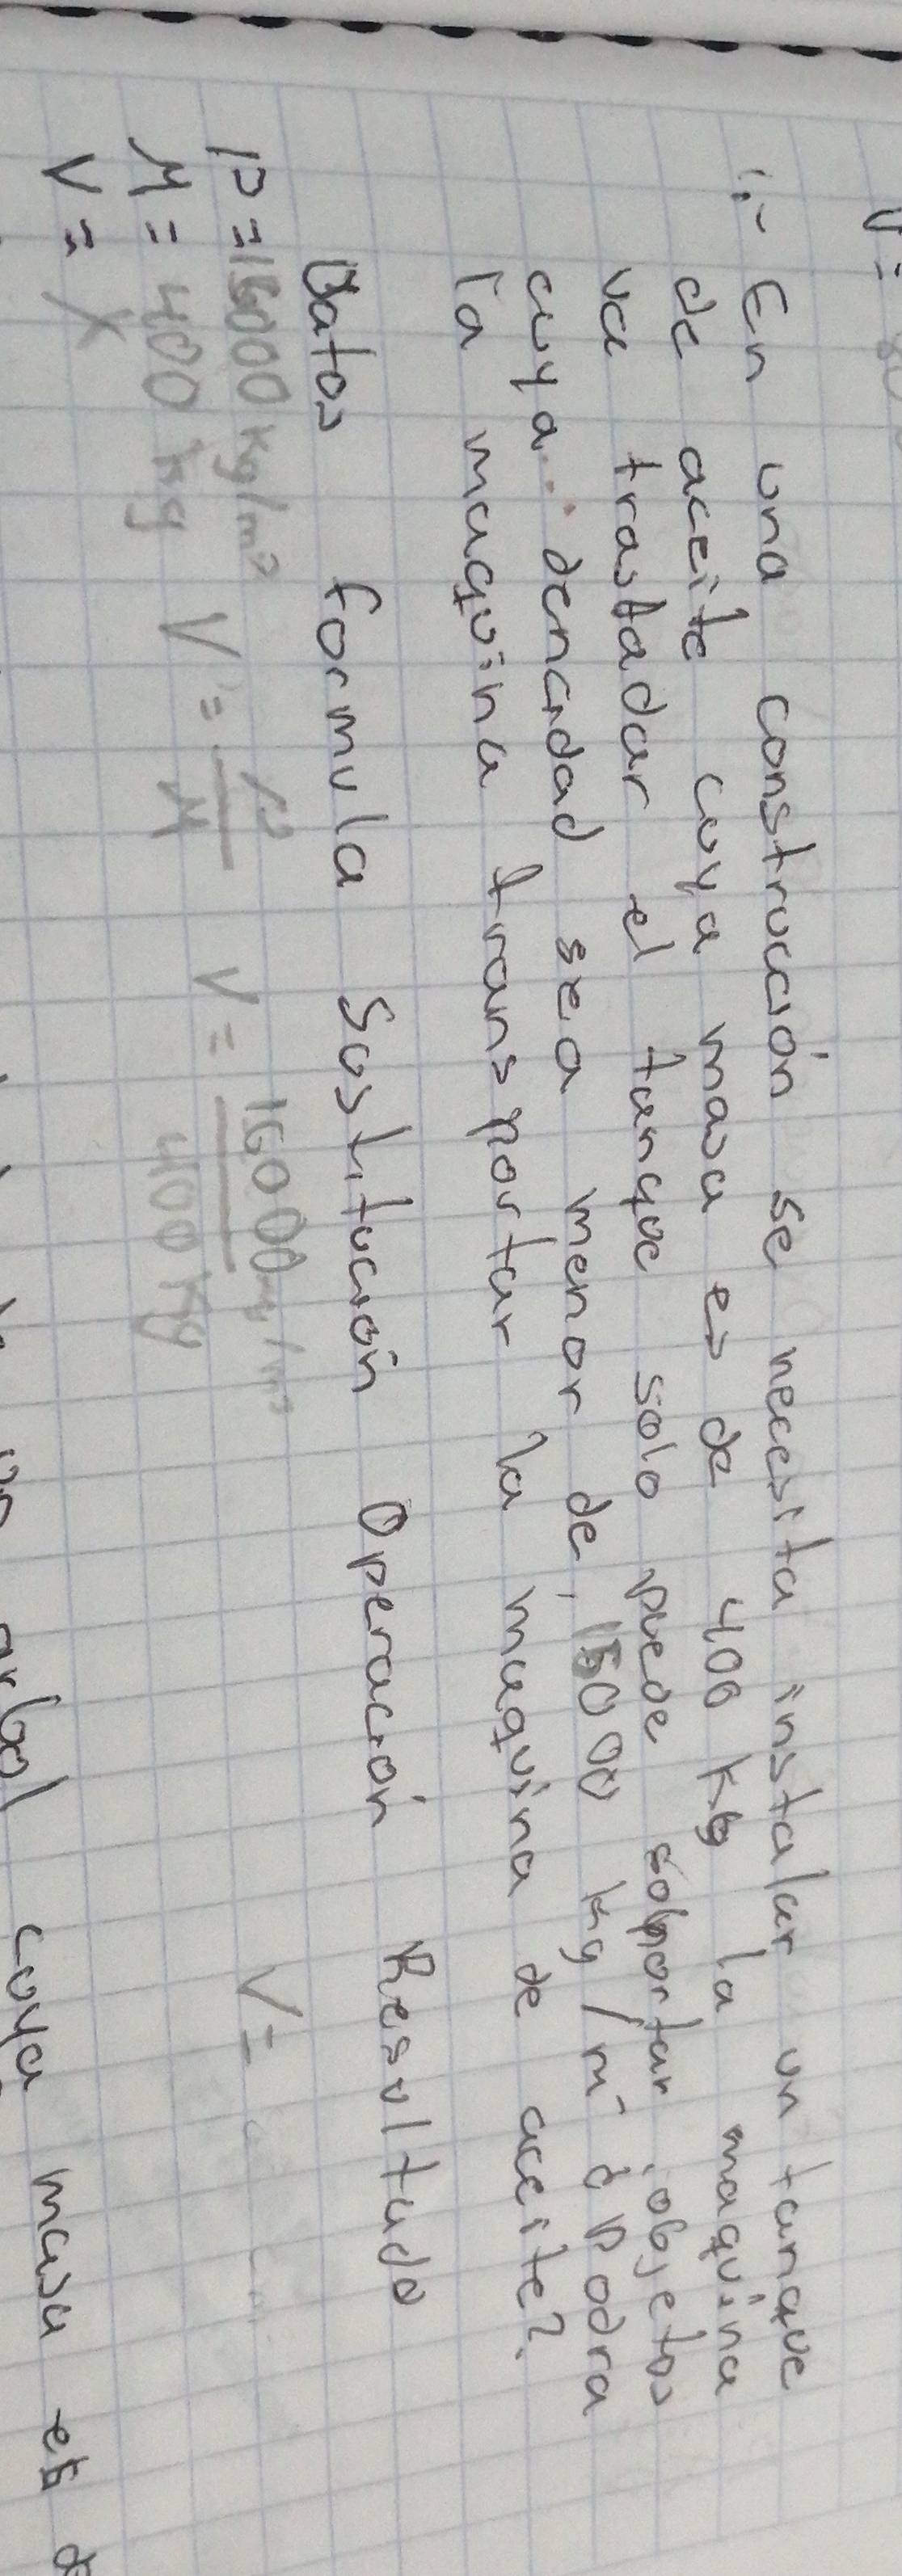 V=
1.- En una construcción se necesita instalar un tanque
de aceite cuya masa es de 400 kg la maquina
va trastadar el tanque solo puede soportar objetos
cuya dencidad sea menor de, 15000 kg/m³ ¿podra
la maquina transportar la maquina de aceite?
Datos formula Sustitución Operación Resultado
P=15000 kg/m³
M= 400 kg V= P/M V= 16000 kg/m³ / 400 kg V=
V= X
arbol cuya masa es d